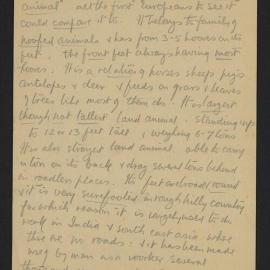 animal" as the first Europeans to see it
could compare it to. It belongs to family of
hoofed animals & has from 3-5 hooves on its
feet. The front feet always having most
hooves. It is a relation of horses sheep pigs
antelopes & deer & feeds on grass & leaves
of trees like most of them do. It is largest
though not tallest land animal. Standing up
to 12 or 13 feet tall, weighing 6-7 tons
It is also strongest land animal able to carry
a ton on its back & drag several tons behind
in roadless places. Its feet are broad & round
& it is very surefooted in rough hilly country
for which reason it is largely used to do
work in India & south east asia where
there are no roads: & it has been made
use of by man as a worker several